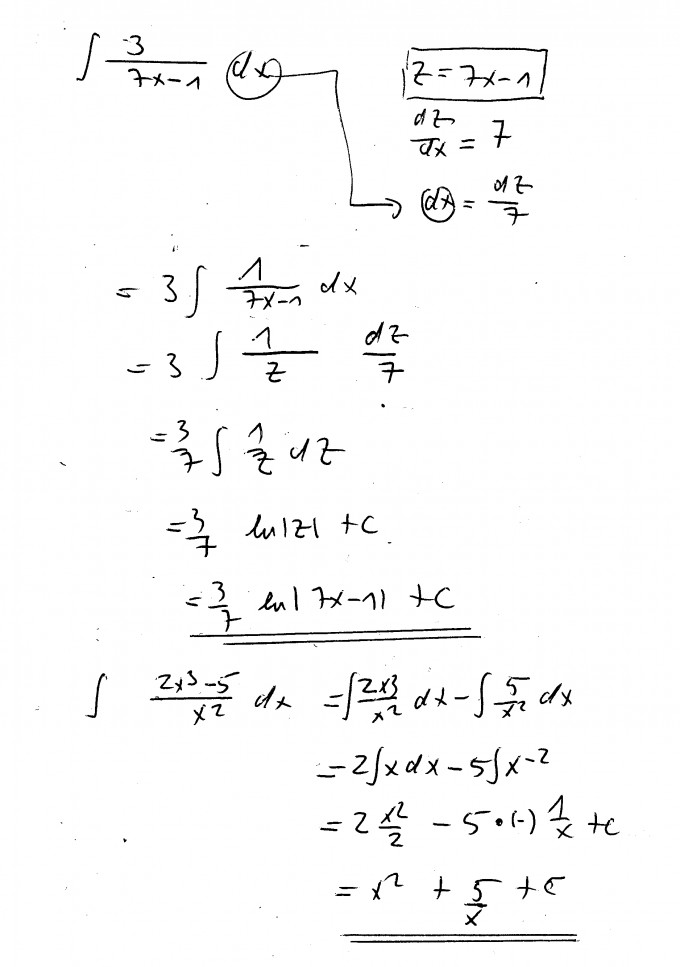 ∫ 3/(7x-1) dx
z = 7x-1
dz/dx = 7
dx = dz/7
= 3 ∫ 1/(7x-1) dx
= 3 ∫ 1/z dz/7
= 3/7 ∫ 1/z dz
= 3/7 ln|z| +c
= 3/7 ln|7x-1| +c
∫ (2x³-5)/x² dx = ∫ 2x³/x² dx - ∫ 5/x² dx
= 2∫x dx - 5∫x⁻²
= 2 x²/2 - 5•(-) 1/x +c
= x² + 5/x +c